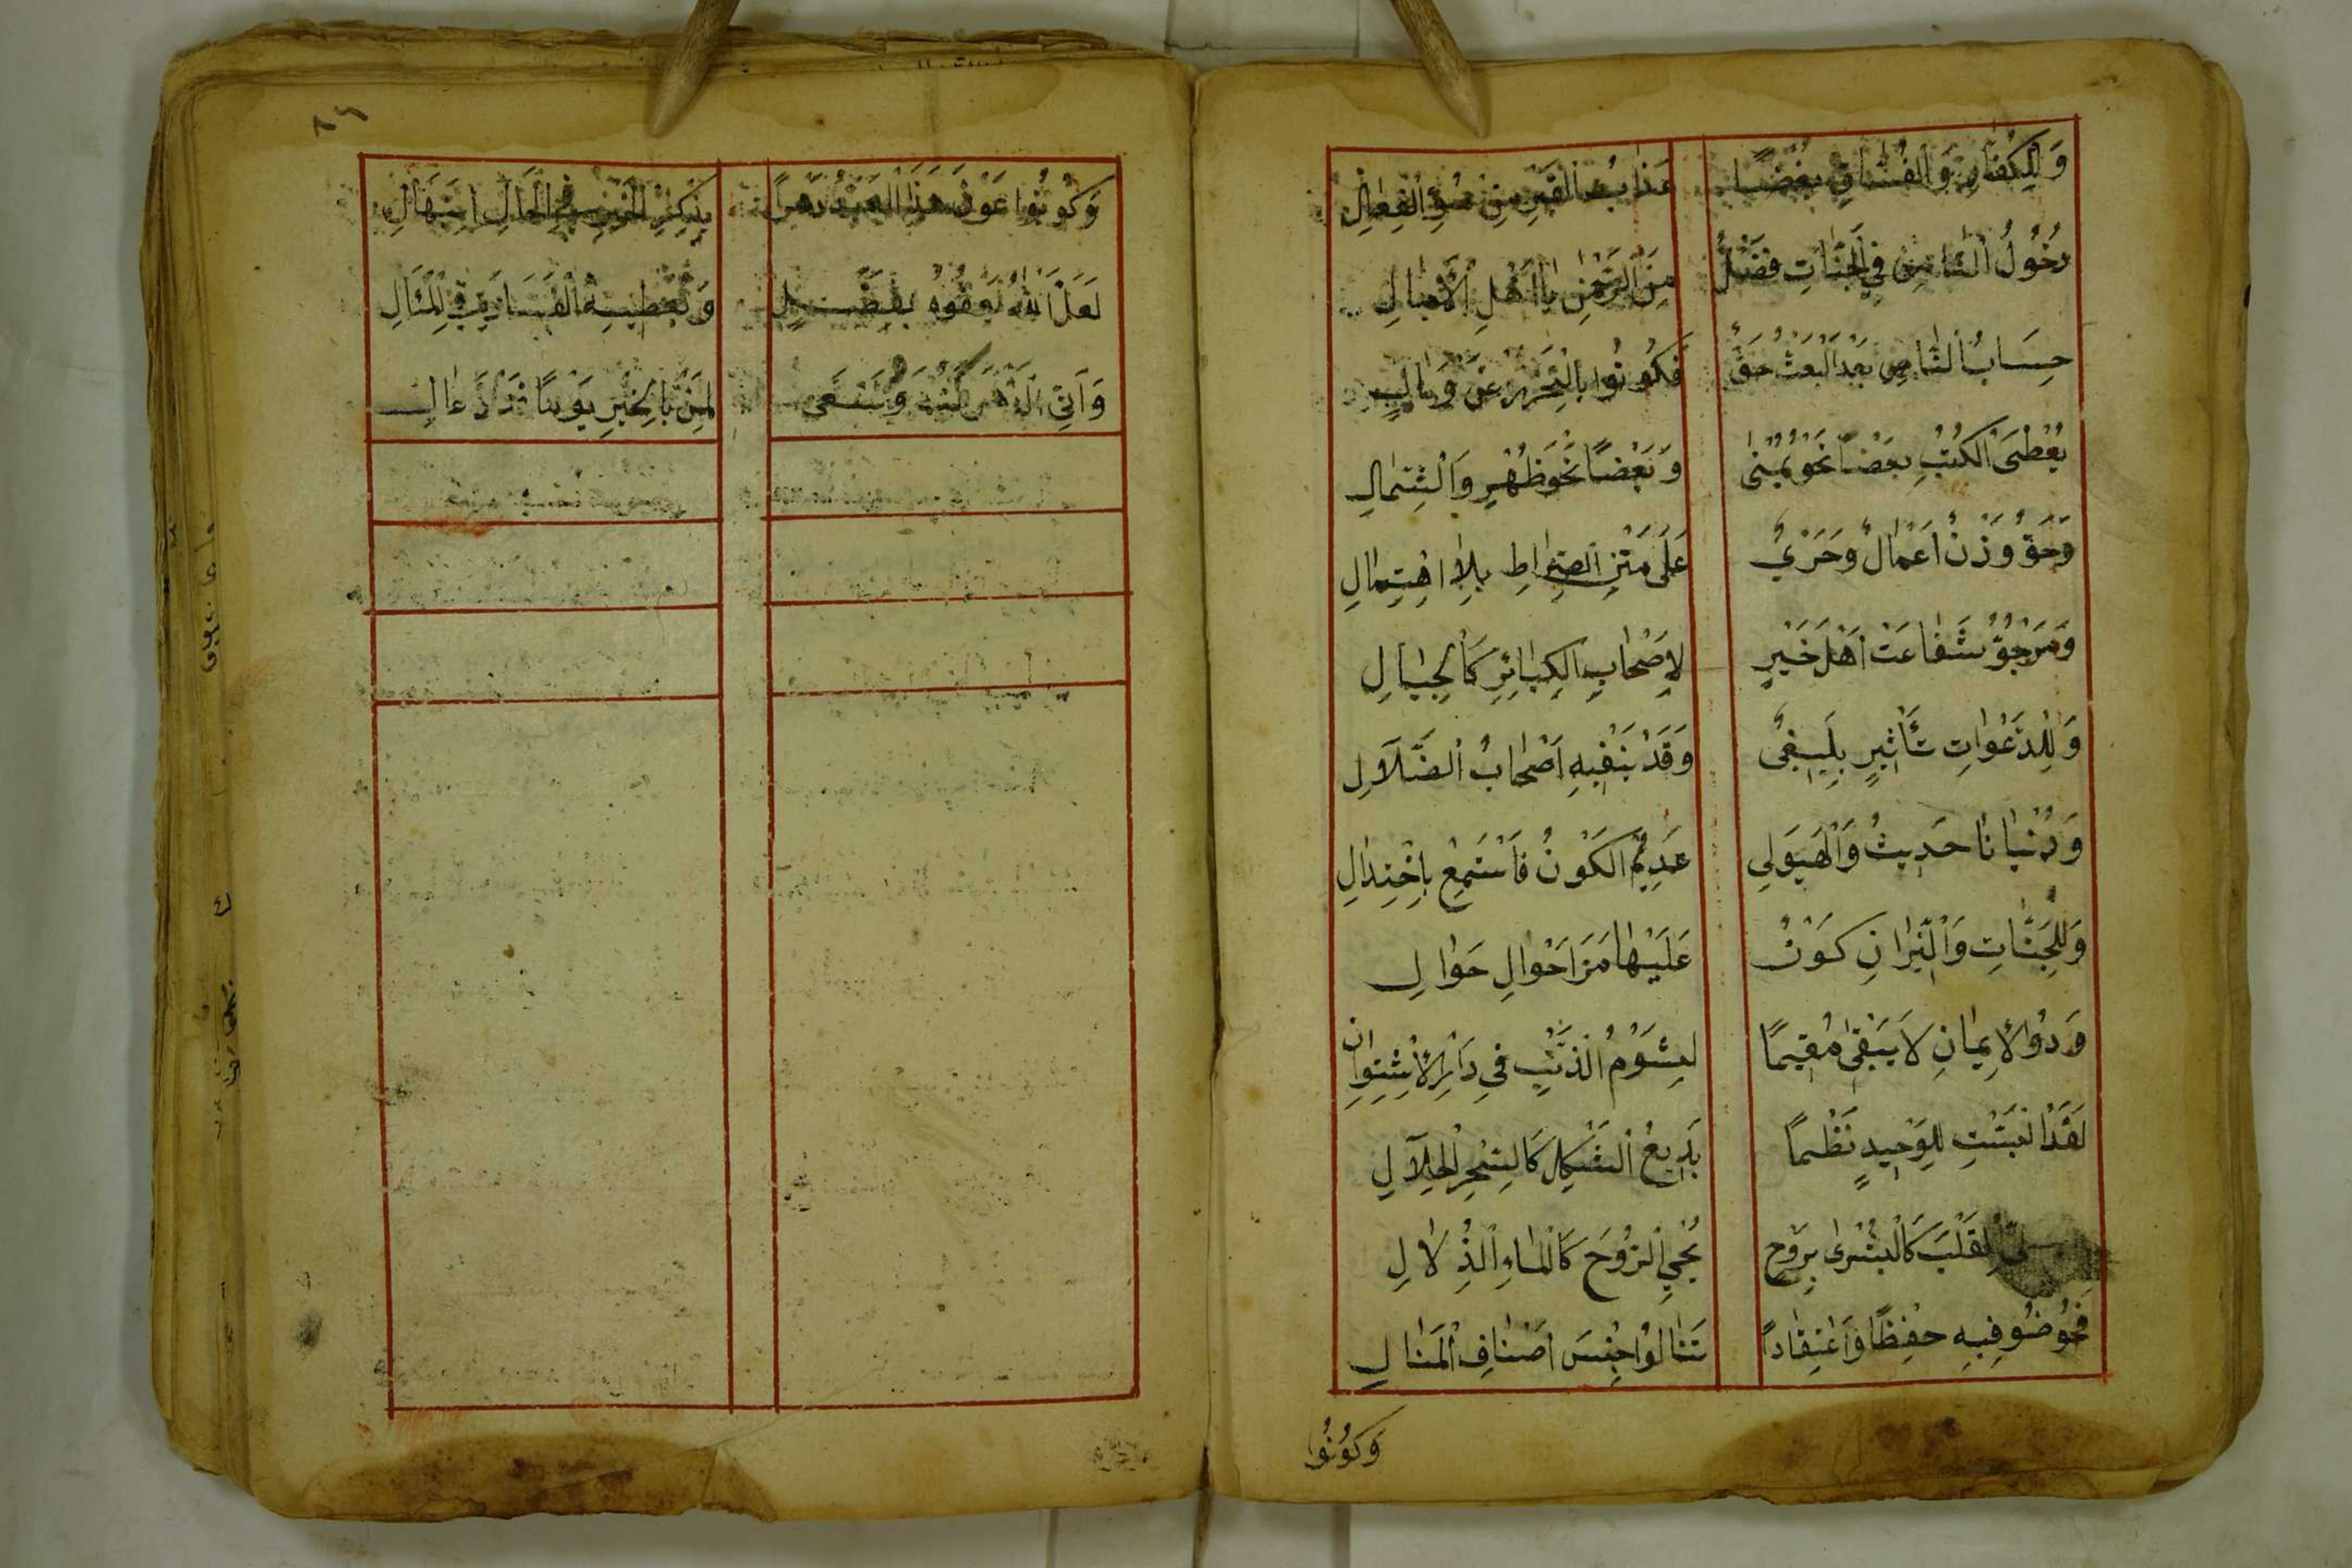 وَلِلْكُفَّارِ وَالْفُسَّاقِ بُغْضًا عَذَابُ الْقَبْرِ مِنْ سُوْءِ الْفِعَالِ
دُخُولُ النَّاسِ فِي الْجَنَّاتِ فَضْلٌ مِنَ الرَّحْمٰنِ يَا اَهْلَ الْأَمَالِ
حِسَابُ النَّاسِ بَعْدَ الْبَعْثِ حَقٌّ فَكُونُوا بِالتَّحَرُّزِ عَنْ وَبَالِ
يُعْطَى الْكُتُبِ بَعْضًا نَحْوَ يُمْنٰى وَبَعْضًا نَحْوَ ظَهْرٍ وَالشِّمَالِ
وَحَقٌّ وَزْنُ اَعْمَالٌ وَجَرْيٌ عَلَى مَتْنِ الصِّرَاطِ بِلَا اهْتِمَالِ
وَمَرْجُوٌّ شَفَاعَتْ اَهْلِ خَيْرٍ لِاَصْحَابِ الْكَبَائِرِ كَالْجِبَالِ
وَلِلدَّعَوَاتِ تَأْثِيرٍ بَلِيغٌ وَقَدْ يَنْفِيهِ اَصْحَابُ الضَّلَالِ
وَدُنْيَانَا حَدِيثُ وَالْهَيَولِى عَدِيمُ الْكَوْنُ فَاسْتَمِعْ بِاخْتِذَالِ
وَلِلْجَنَّاتِ وَالنِّيرَانِ كَوْنٌ عَلَيْهَا مَرَّ اَحْوَالِ حَوَالِ
وَذُوا الْإِيمَانِ لَا يَبْقٰى مُقِيمًا لِشُؤْمِ الذَّنْبِ فِي دَارِ
لَقَدْ لِلْوَحِيدٍ نَظْمًا بَدِيعُ الشَّكِلِ كَالسِّحْرِ الْحَلَالِ
الْقَلْبَ كَالْبُشْرٰى بِرَوْحٍ يُحْيِ الرُّوحَ كَالْمَاءِ الذُّلَالِ
فَخُوضُو فِيهِ حِفْظًا وَاعْتِقَادًا تَنَالُوا جِنْسَ اَصْنَافِ الْمَنَالِ
وَكُونُوا
٨٤
وَكُونُوا عَوْنَ هَذَا الْعَبْدِ دَهْرًا بِذِكْرِ الْخَيْرِ فِي الْحَالِ ابْتِهَالِ
لَعَلَّ اللهُ يَعْفُوهُ بِفَضْلٍ وَيُعْطِيهِ السَّعَادَة فِي الْمَآلِ
وَاِنِّي الدَّهْرَ لِمَنْ بِالْخَيْرِ يَوْمًا قَدْ دَعَا لِى